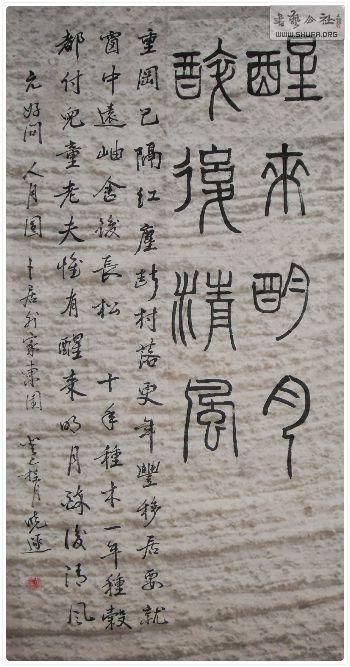 書藝公社
WWW.SHUFA.ORG
醒來明月
醉後清風
重岡已隔紅塵斷村落更年豐移居要就
窗中遠岫舍後長松十年種木一年種穀
都付兒童老夫惟有醒來明月醉後清風
元好問 人月圓 卜居外家東園 桂月